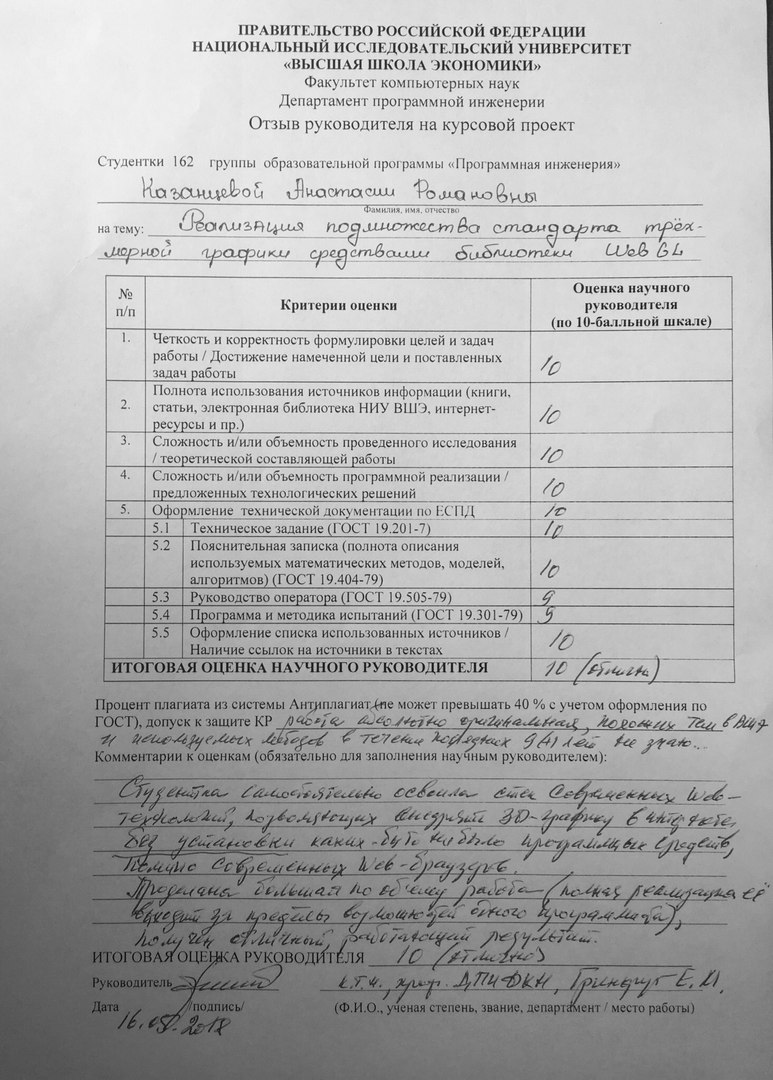 ПРАВИТЕЛЬСТВО РОССИЙСКОЙ ФЕДЕРАЦИИ
НАЦИОНАЛЬНЫЙ ИССЛЕДОВАТЕЛЬСКИЙ УНИВЕРСИТЕТ
«ВЫСШАЯ ШКОЛА ЭКОНОМИКИ»
Факультет компьютерных наук
Департамент программной инженерии
Отзыв руководителя на курсовой проект
Студентки 162 группы образовательной программы «Программная инженерия»
Казанцевой Анастасии Романовны
Фамилия, имя, отчество
на тему: Реализация подмножества стандарта трёх-
мерной графики средствами библиотеки WebGL
№ п/п Критерии оценки Оценка научного руководителя (по 10-балльной шкале)
1. Четкость и корректность формулировки целей и задач
работы / Достижение намеченной цели и поставленных
задач работы 10
2. Полнота использования источников информации (книги,
статьи, электронная библиотека НИУ ВШЭ, интернет-
ресурсы и пр.) 10
3. Сложность и/или объемность проведенного исследования
/ теоретической составляющей работы 10
4. Сложность и/или объемность программной реализации /
предложенных технологических решений 10
5. Оформление технической документации по ЕСПД 10
5.1 Техническое задание (ГОСТ 19.201-7) 10
5.2 Пояснительная записка (полнота описания
используемых математических методов, моделей,
алгоритмов) (ГОСТ 19.404-79) 10
5.3 Руководство оператора (ГОСТ 19.505-79) 9
5.4 Программа и методика испытаний (ГОСТ 19.301-79) 9
5.5 Оформление списка использованных источников /
Наличие ссылок на источники в текстах 10
ИТОГОВАЯ ОЦЕНКА НАУЧНОГО РУКОВОДИТЕЛЯ 10 (отлично)
Процент плагиата из системы Антиплагиат (не может превышать 40 % с учетом оформления по
ГОСТ), допуск к защите КР работа абсолютно оригинальная, похожих тем в
и используемых методов в течении последних лет не знаю...
Комментарии к оценкам (обязательно для заполнения научным руководителем):
Студентка самостоятельно освоила стек современных Web-
технологий, позволяющих внедрять 3D-графику в
без установки каких-бы то ни было программных средств,
помимо современных Web-браузеров.
Проделана большая по объему работа (полная реализация её
выходит за пределы одного программиста),
получен отличный, работающий результат.
ИТОГОВАЯ ОЦЕНКА РУКОВОДИТЕЛЯ 10 (отлично)
Руководитель к.т.н., проф. ДПИ ФКН, Гринкруг Е.М.
Дата /подпись/ (Ф.И.О., ученая степень, звание, департамент / место работы)
16.05.2018